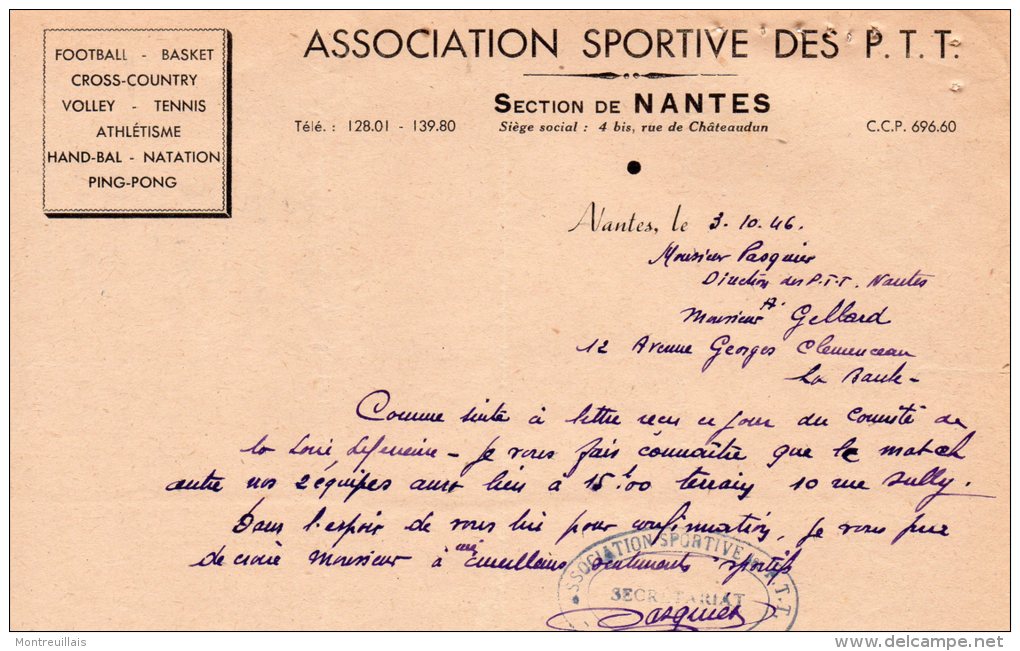 FOOTBALL - BASKET
CROSS-COUNTRY
VOLLEY - TENNIS
ATHLÉTISME
HAND-BAL - NATATION
PING-PONG
ASSOCIATION SPORTIVE DES P.T.T.
SECTION DE NANTES
Télé. : 128.01 - 139.80
Siège social : 4 bis, rue de Châteaudun
C.C.P. 696.60
Nantes, le 3.10.46.
Monsieur Pasquier
Direction des P.T.T. Nantes
Monsieur A. Gellard
12 Avenue Georges Clemenceau
La Baule -
Comme suite à lettre reçu ce jour du Comité de
la Loire Inférieure - Je vous fais connaître que le match
entre nos 2 équipes aura lieu à 15h00 terrain 10 rue Sully.
Dans l'espoir de vous lire pour confirmation, je vous prie
de croire Monsieur à mes meilleurs sentiments sportifs
ASSOCIATION SPORTIVE P.T.T.
SECRETARIAT
Pasquier
Montreuillais
delcampe.net